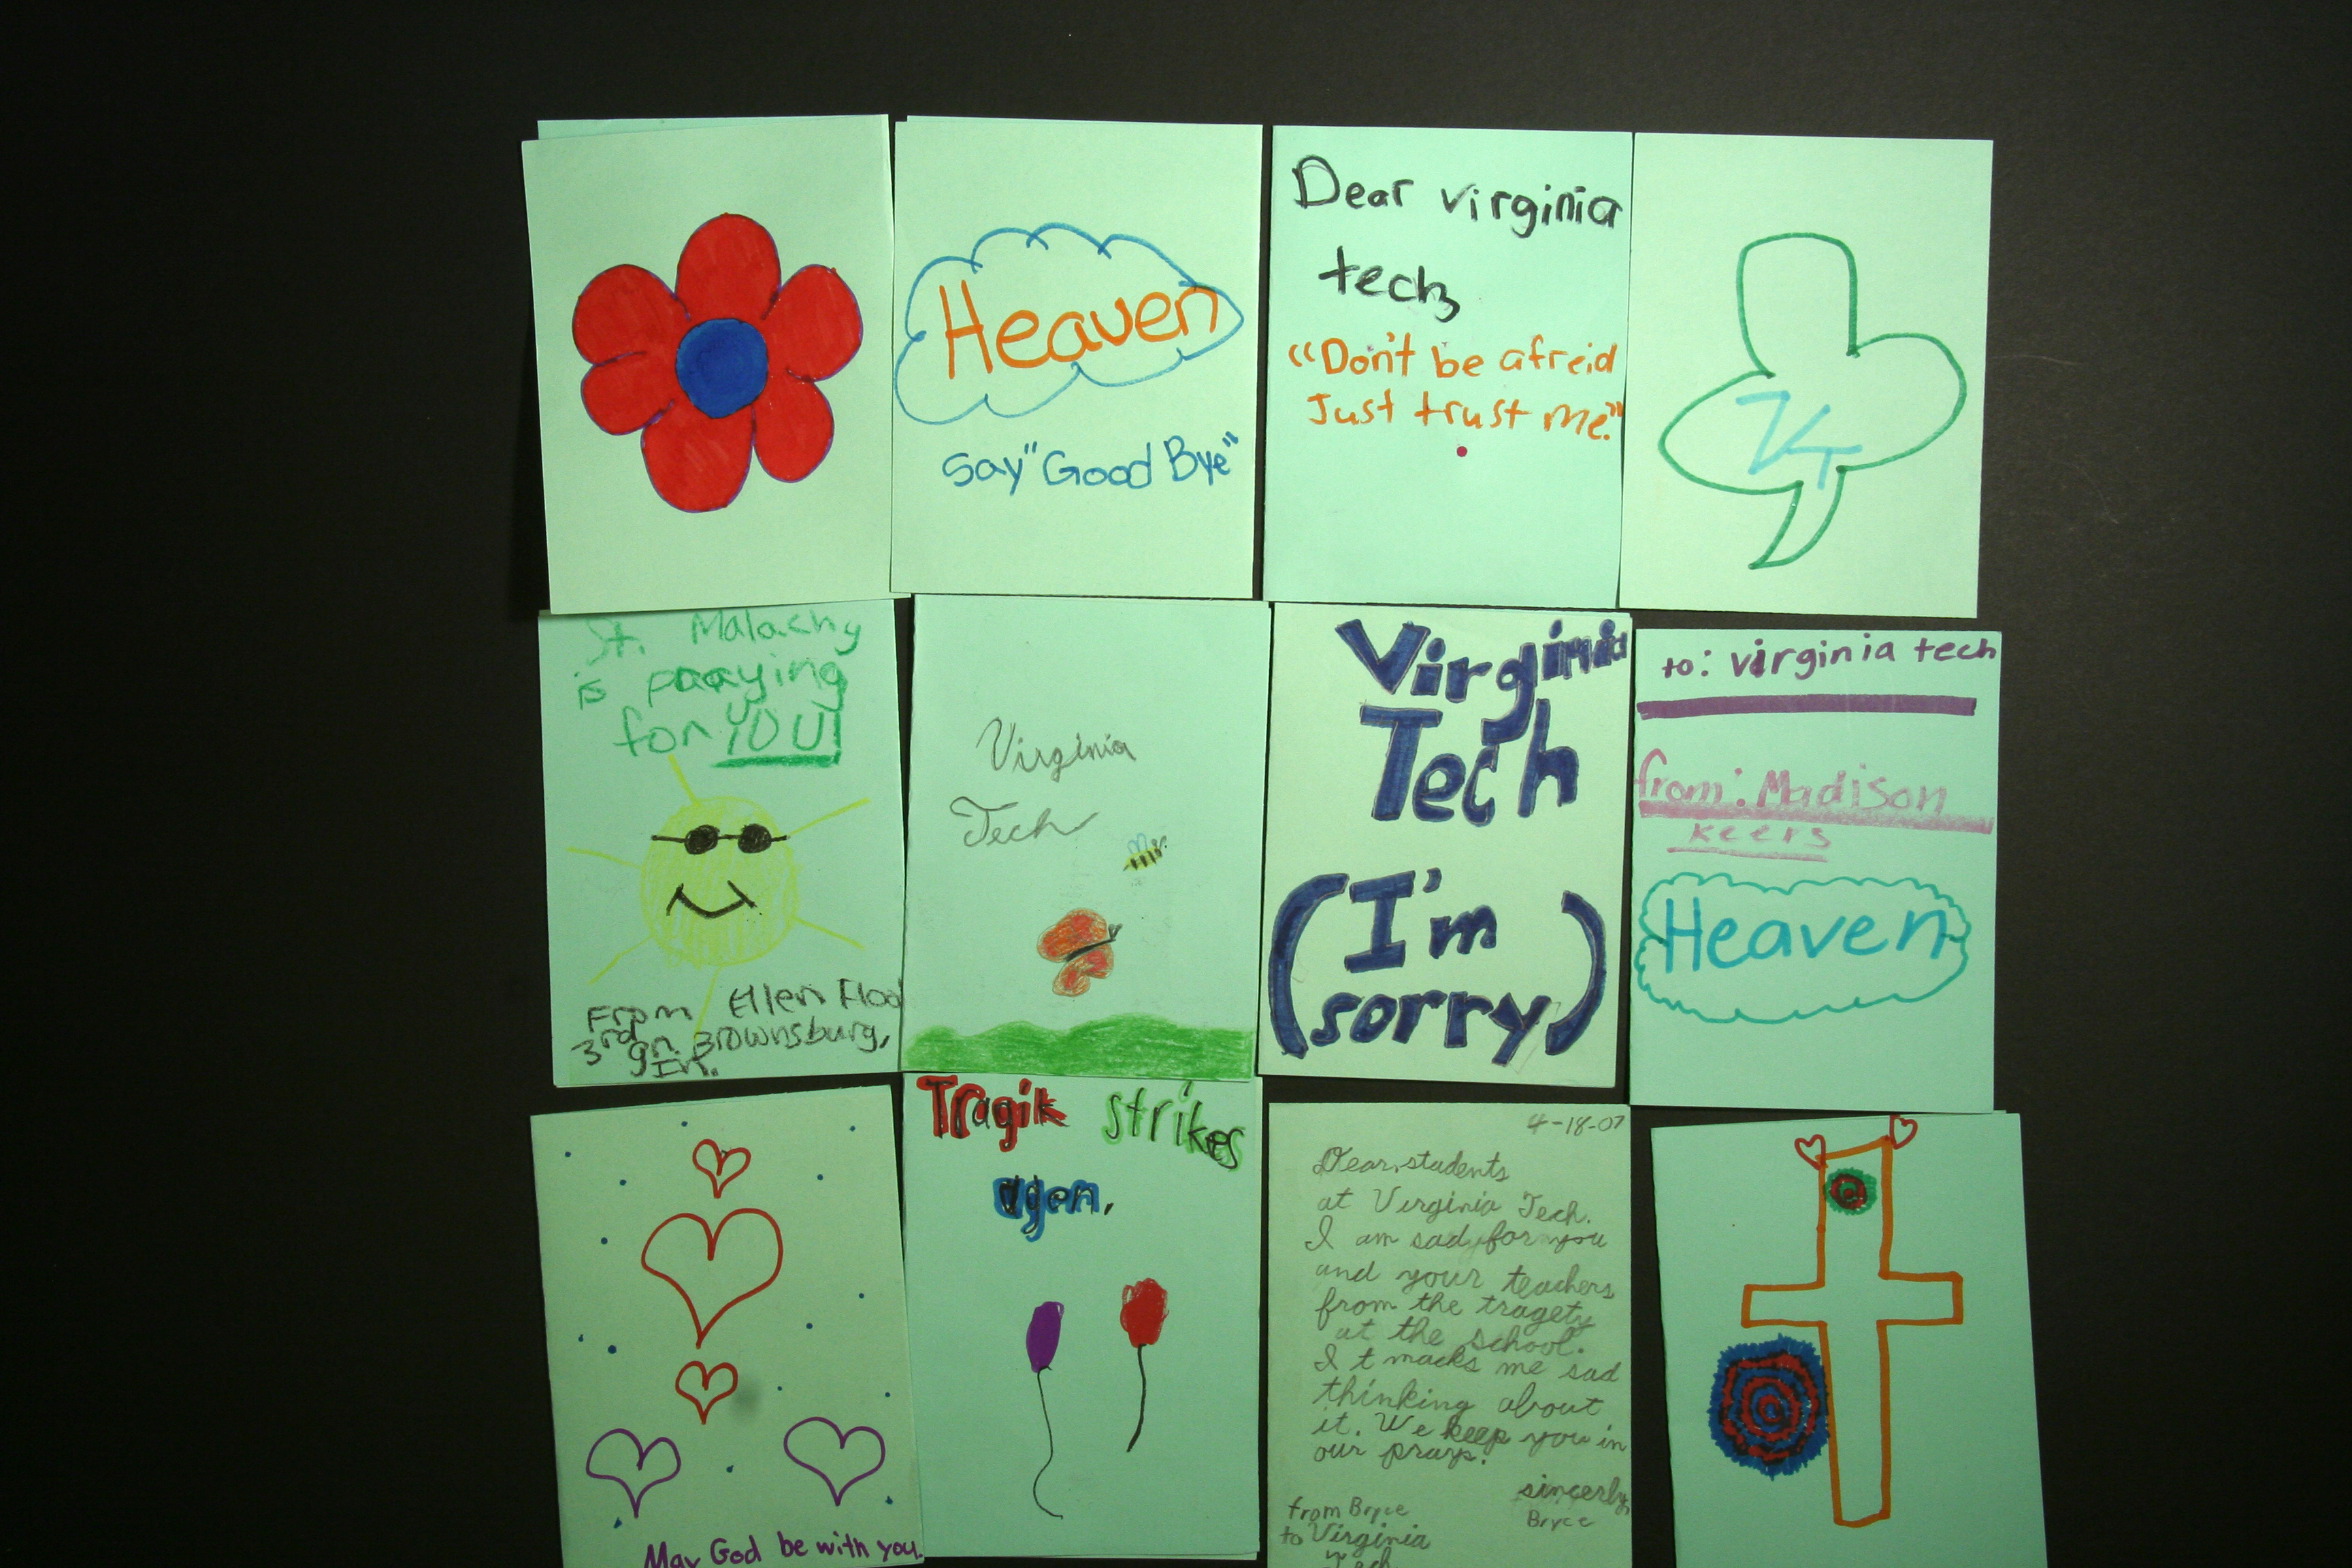 Heaven
Say "Good Bye"
Dear virginia
tech,
"Don't be afreid
Just trust me."
VT
St. Malachy
is praying
for YOU!
From Ellen Flood
3rd gr. Brownsburg,
In.
Virginia
Tech
Virginia
Tech
(I'm
sorry)
to: virginia tech
from: Madison
keers
Heaven
May God be with you.
Tragik strikes
agen.
4-18-07
Dear, students
at Virginia Tech.
I am sad for you
and your teachers
from the tragety
at the school.
I t macks me sad
thinking about
it. We keep you in
our prays.
sincerly,
Bryce
from Bryce
to Virginia
Tech